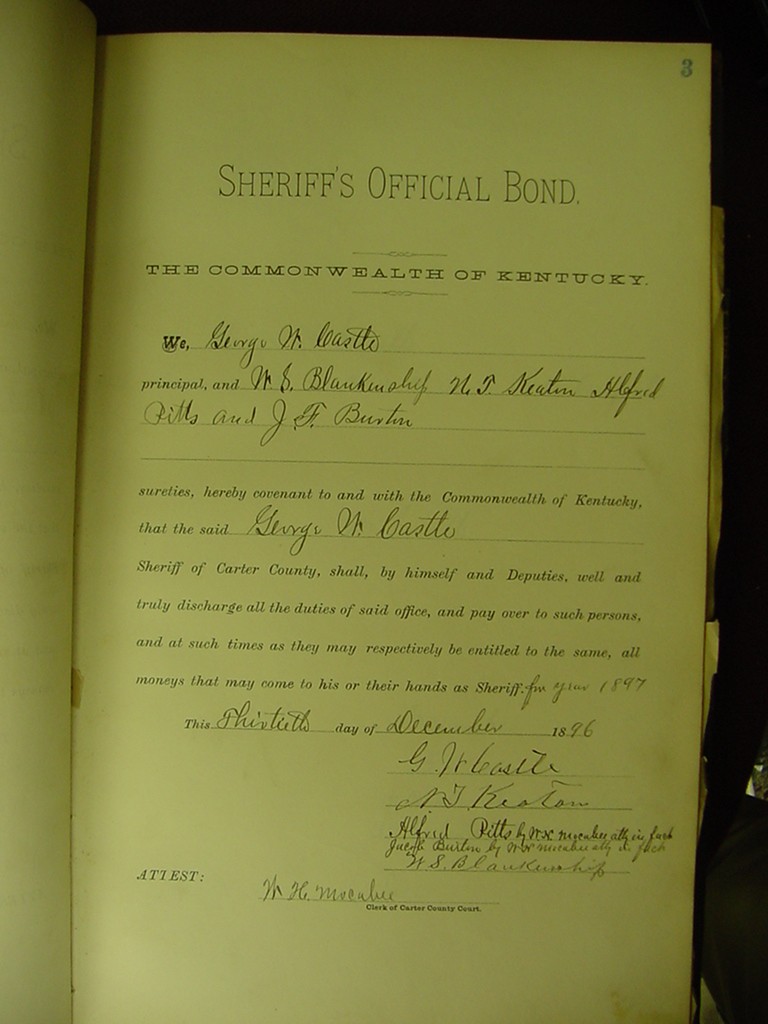 3
SHERIFF'S OFFICIAL BOND.
THE COMMONWEALTH OF KENTUCKY.
We, George W. Castle
principal, and W. S. Blankenship N. T. Keaton Alfred
Pitts and J. F. Burton
sureties, hereby covenant to and with the Commonwealth of Kentucky,
that the said George W. Castle
Sheriff of Carter County, shall, by himself and Deputies, well and
truly discharge all the duties of said office, and pay over to such persons,
and at such times as they may respectively be entitled to the same, all
moneys that may come to his or their hands as Sheriff. for year 1897
This Thirtieth day of December 1896
G. W. Castle
N. T. Keaton
Alfred Pitts by W H Mocabee atty in fact
Jacob Burton by W H Mocabee atty in fact
W. S. Blankenship
ATTEST:
W. H. Mocabee
Clerk of Carter County Court.